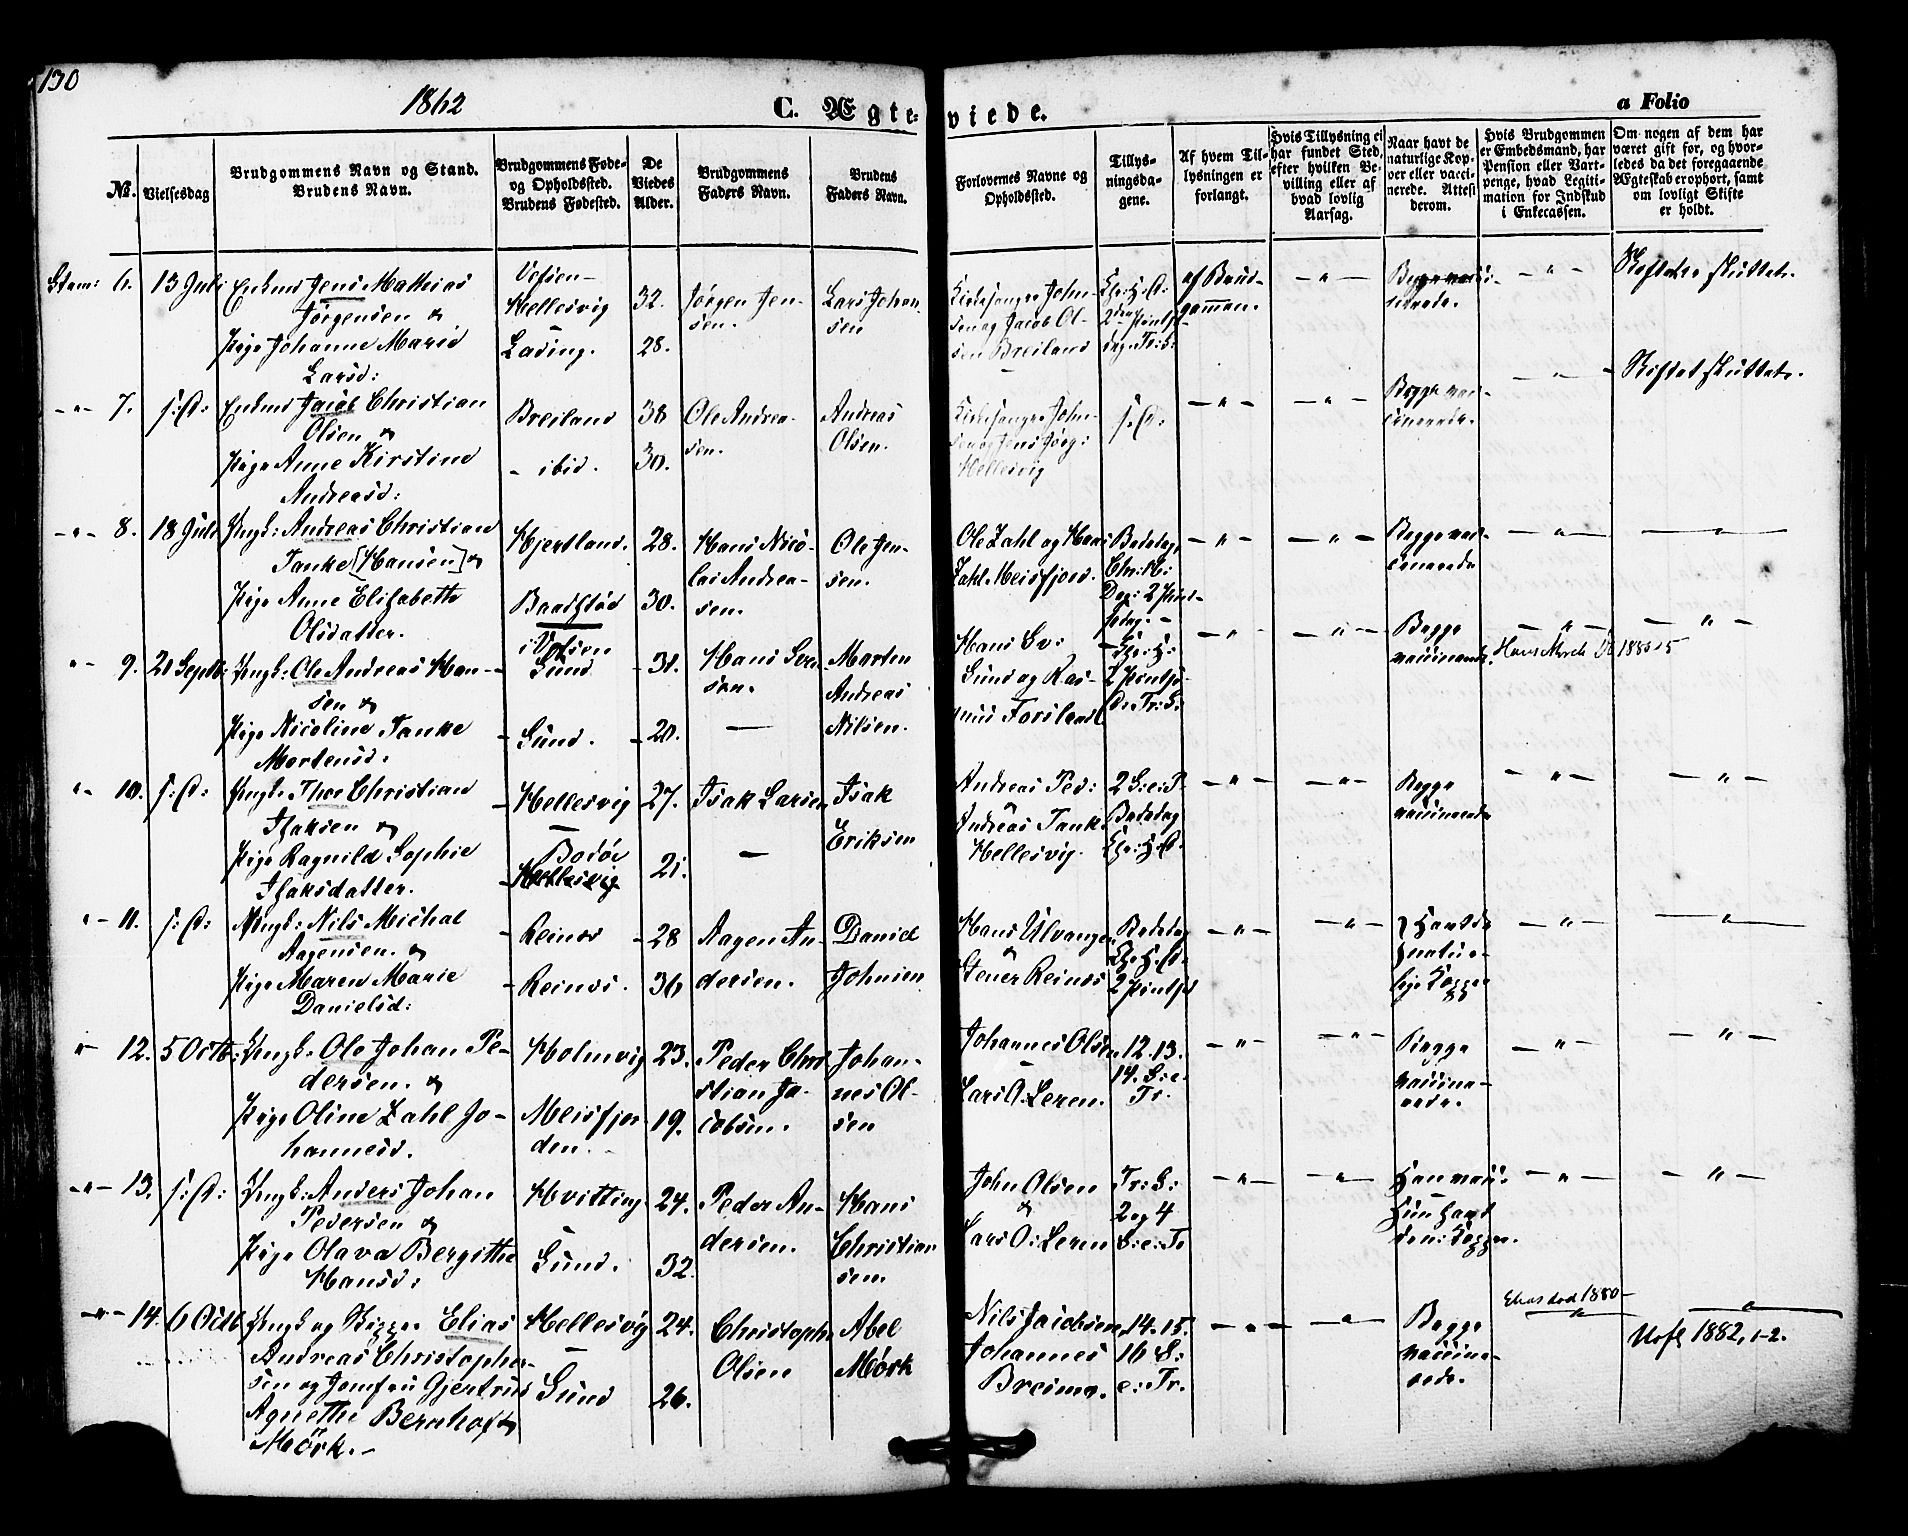 130
1862
C. Ægte-
viede.
a Folio
No.
Vielsesdag
Brudgommens Navn og Stand.
Brudens Navn.
Brudgommens Føde-
og Opholdssted.
Brudens Fødested.
De
Viedes
Alder.
Brudgommens
Faders Navn.
Brudens
Faders Navn.
Forlovernes Navne og
Opholdssted.
Tillys-
ningsda-
gene.
Af hvem Til-
lysningen er
forlangt.
Hvis Tillysning ei
har fundet Sted,
efter hvilken Be-
villing eller af
hvad lovlig
Aarsag.
Naar havt de
naturlige Kop-
per eller vacci-
nerede. Attest
derom.
Hvis Brudgommen
er Embedsmand, har
Pension eller Vart-
penge, hvad Legiti-
mation for Indskud
i Enkecassen.
Om nogen af dem har
været gift før, og hvor-
ledes da det foregaaende
Ægteskab er ophørt, samt
om lovligt Skifte
er holdt.
6.
13 Juli
Enkem Jens Mathias
Jørgensen &
Pige Johanne Marie
Larsd:
Vefsen-
Hellesvig
Lading.
32.
28.
Jørgen Jen-
sen.
Lars Johan
sen
Kirkesanger John-
sen og Jacob Ol-
sen Breiland
2den Pintse-
dag. Tr: S:
af Brud-
gommen.
- " -
Begge vacci-
nerede.
- " -
Skiftet sluttet.
- " - 7.
s: D:
Enkem Jacob Christian
Olsen &
Pige Anne Kirstine
Andreasd:
Breiland
- ibid.
38
30.
Ole Andrea-
sen.
Andreas
Olsen.
Kirkesanger John-
sen og Jens Jørg:
Hellesvig
s: D:
- " -
- " -
Begge vac-
cinerede.
- " -
Skiftet sluttet.
- " - 8.
18 Juli
Ungk: Andreas Christian
Tanke [Hansen] &
Pige Anne Elisabeth
Olsdatter.
Hjertland.
Baadstad
i Vefsen
28.
30.
Hans Nico-
lai Andrea-
sen.
Ole Jen-
sen.
Ole Zahl og Hans
Zahl Meisfjord.
Bededag,
Chr: H:
Dag: 2 Pint-
sedag. -
- " -
- " -
Begge vac-
cinerede
- " -
- " -
" - 9.
21 Septb:
Ungk: Ole Andreas Han-
sen &
Pige Nicoline Tanke
Mortensd:
Sund
Sund.
31.
20.
Hans Sør-
sen.
Morten
Andreas
Nilsen.
Hans Sv:
Sund og Ras-
mus Forsland
Chr: H:
2 Pintse
D: Tr: S:
- " -
- " -
Begge
vaccinerede.
- " -
- " -
" - 10.
s: D:
Ungk: Thor Christian
Isaksen &
Pige Ragnild Sophie
Isaksdatter.
Hellesvig
Bodøe
Hellesvig
27.
21.
Isak Larsen
Isak
Eriksen
Andreas Ped:
Andreas Tank
Hellesvig.
2 S: e: P.
Bededag
Chr: H: D:
- " -
- " -
Begge
vaccinerede
- " -
- " -
" - 11.
s: D:
Ungk: Nils Michal
Aagensen. &
Pige Maren Marie
Danielsd:
Reines
Reines.
28
36
Aagen An-
dersen.
Daniel
Johnsen
Hans Ulvangen
&
Stener Reines
Bededag
Chr: H: D:
2 Pintsd
- " -
- " -
Havt de
natur-
lige Kopper
- " -
- " -
" 12.
5 Octb:
Ungk: Ole Johan Pe-
dersen. &
Pige Oline Zahl Jo-
hannesd.
Holmvig
Meisfjor-
den.
23.
19.
Peder Chri
stian Ja-
cobsen.
Johan-
nes Ol-
sen
Johannes Olsen
Lars O: Leren.
12. 13.
14. S: e:
Tr.
- " -
- " -
Begge
vaccine-
rede.
- " -
- " -
- " - 13.
s: D:
Ungk: Anders Johan
Pedersen &
Pige Olava Bergitthe
Hansd:
Hvitting
Sund.
24.
32.
Peder An-
dersen.
Hans
Christian
sen.
John Olsen
&
Lars O: Leren
Tr: S:
2 og 4
S: e: Tr
- " -
- " -
Han vacci:
Hun havt
den: Kopper.
- " -
- " -
- " - 14.
6 Octb
Ungk og Skipper Elias
Andreas Christopher-
sen og Jomfru Gjertrud
Agnethe Bernhoft
Mörk. -
Hellesvig
Sund
24.
26.
Christopher
Olsen
Abel
Mørk
Nils Jacobsen
Johannes
Breimo.
14. 15.
16 S:
e: Tr.
- " -
- " -
Begge
vaccine-
rede.
Elias død 1880
- " -
1882, 1-2.